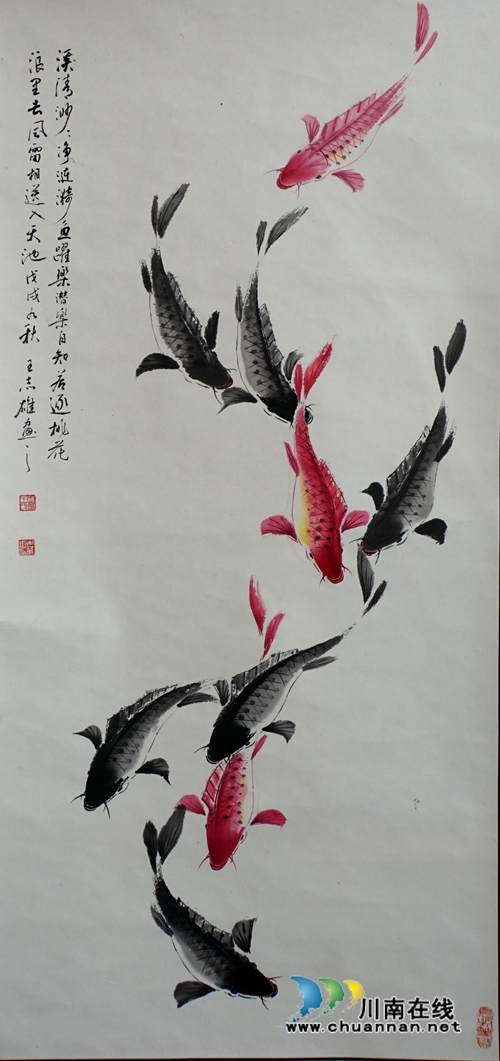 溪清渺渺净涟漪鱼跃乐谐乐自知若逐桃花
浪里去风雷相送入天池戊戌九秋王志雄画之
川南在线
www.chuannan.net